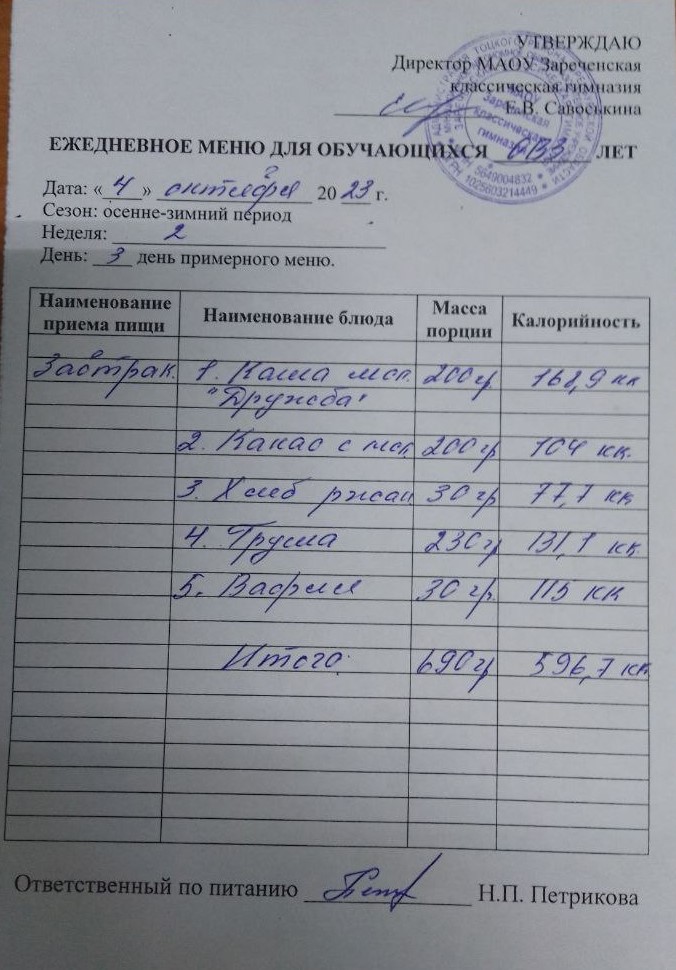 УТВЕРЖДАЮ
Директор МАОУ Зареченская
классическая гимназия
Е.В. Савоськина
ЕЖЕДНЕВНОЕ МЕНЮ ДЛЯ ОБУЧАЮЩИХСЯ ОВЗ ЛЕТ
Дата: « 4 » октября 20 23 г.
Сезон: осенне-зимний период
Неделя: 2
День: 3 день примерного меню.
Наименование приема пищи Наименование блюда Масса порции Калорийность
Завтрак. 1. Каша мол. 200 гр 168,9 кк
"Дружба"
2. Какао с мол 200 гр 104 кк.
3. Хлеб ржан 30 гр 77,7 кк
4. Груша 230 гр 131,1 кк
5. Вафля 30 гр. 115 кк
Итого: 690 гр 596,7 кк
Ответственный по питанию Н.П. Петрикова
МАОУ
Зареченская
классическая
гимназия
5649004832
ОГРН 1025603214449